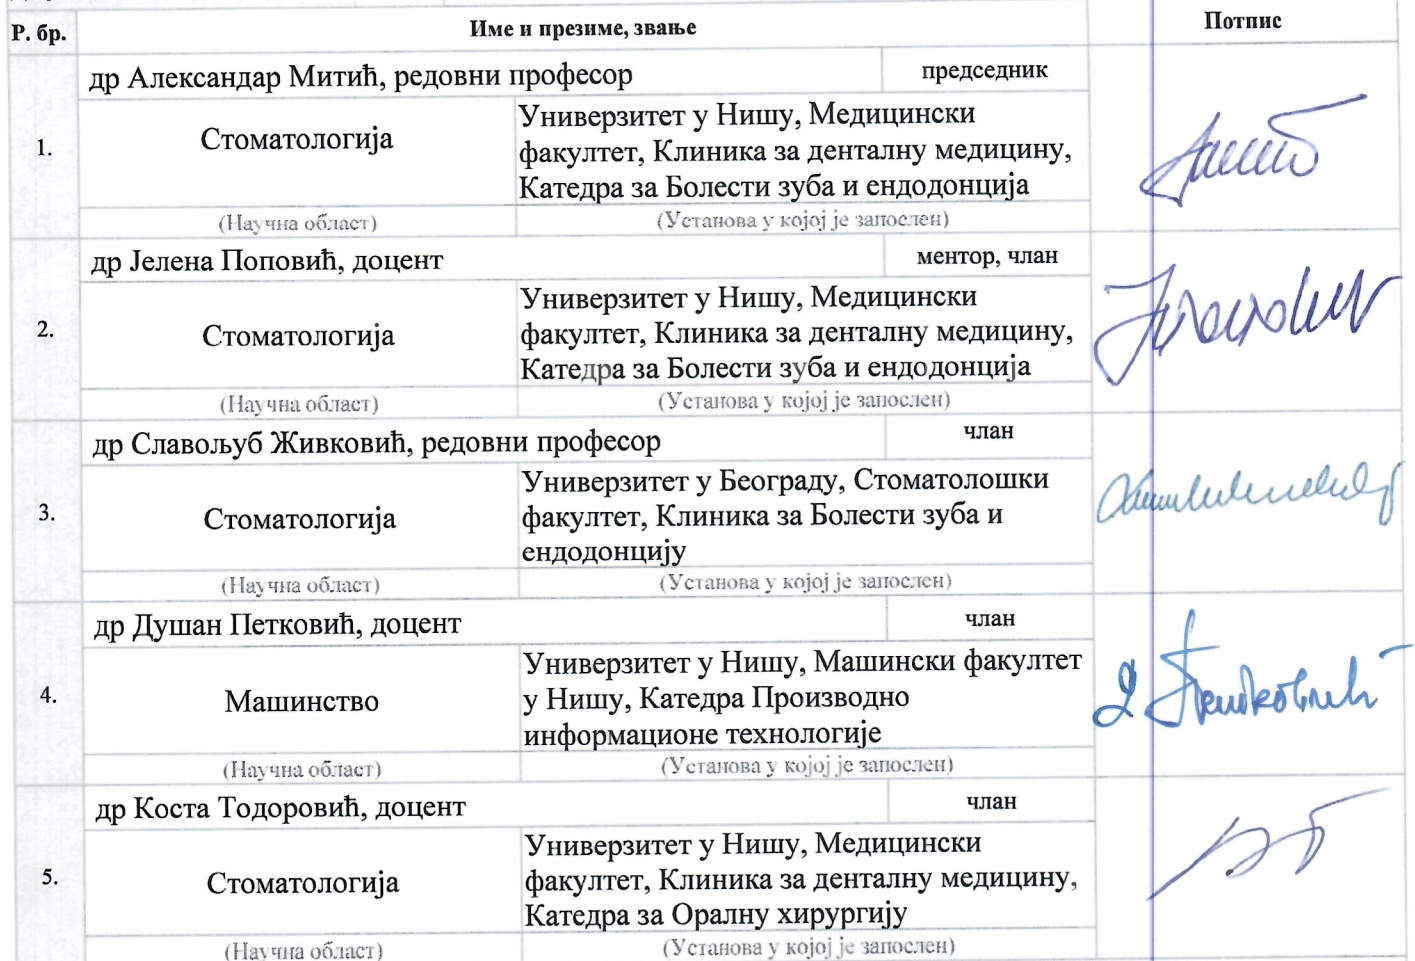 Р. бр.
Име и презиме, звање
Потпис
1.
др Александар Митић, редовни професор
председник
Стоматологија
Универзитет у Нишу, Медицински
факултет, Клиника за денталну медицину,
Катедра за Болести зуба и ендодонција
(Научна област)
(Установа у којој је запослен)
2.
др Јелена Поповић, доцент
ментор, члан
Стоматологија
Универзитет у Нишу, Медицински
факултет, Клиника за денталну медицину,
Катедра за Болести зуба и ендодонција
(Научна област)
(Установа у којој је запослен)
3.
др Славољуб Живковић, редовни професор
члан
Стоматологија
Универзитет у Београду, Стоматолошки
факултет, Клиника за Болести зуба и
ендодонцију
(Научна област)
(Установа у којој је запослен)
4.
др Душан Петковић, доцент
члан
Машинство
Универзитет у Нишу, Машински факултет
у Нишу, Катедра Производно
информационе технологије
(Научна област)
(Установа у којој је запослен)
5.
др Коста Тодоровић, доцент
члан
Стоматологија
Универзитет у Нишу, Медицински
факултет, Клиника за денталну медицину,
Катедра за Оралну хирургију
(Научна област)
(Установа у којој је запослен)